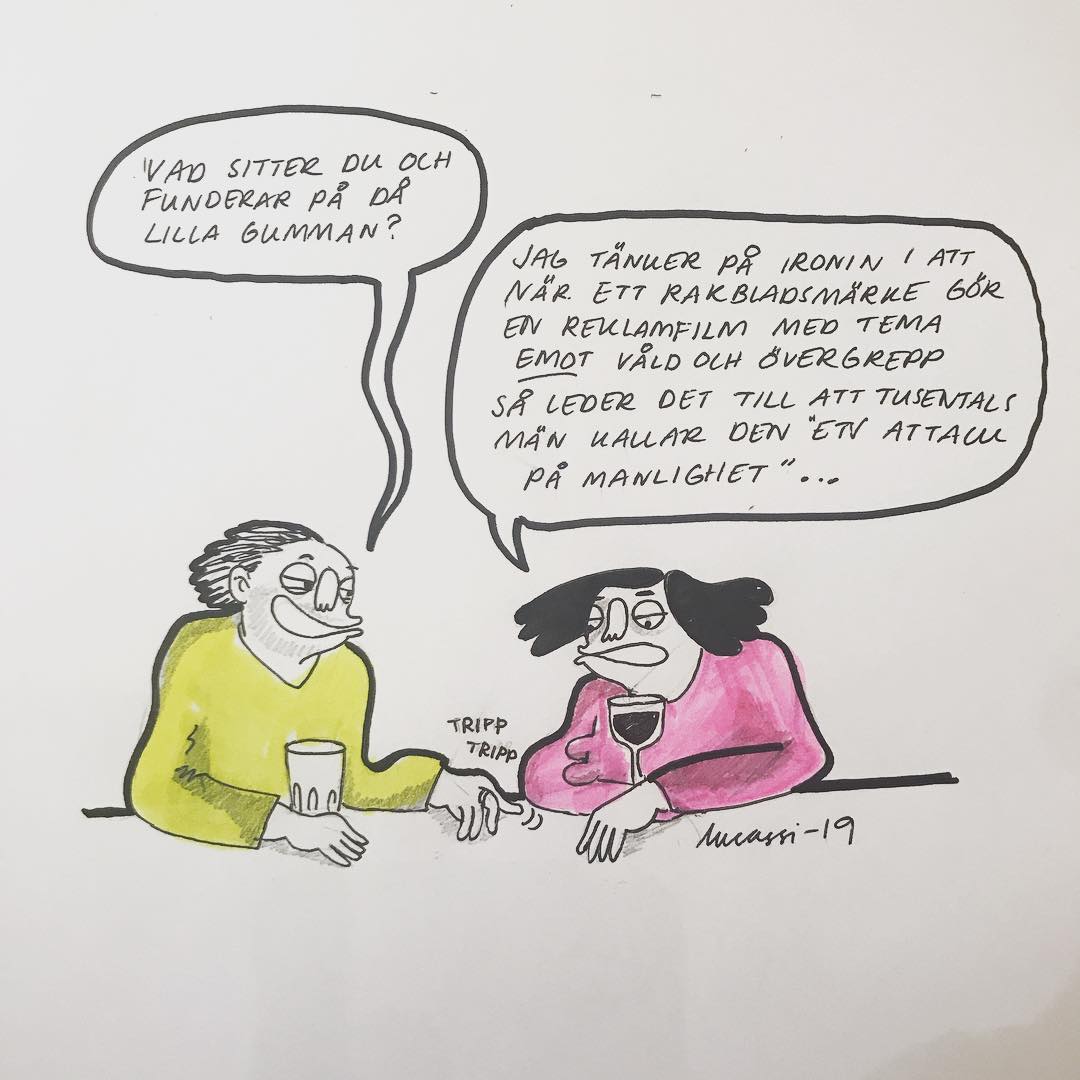 "VAD SITTER DU OCH
FUNDERAR PÅ DÅ
LILLA GUMMAN?
JAG TÄNKER PÅ IRONIN I ATT
NÄR ETT RAKBLADSMÄRKE GÖR
EN REKLAMFILM MED TEMA
EMOT VÅLD OCH ÖVERGREPP
SÅ LEDER DET TILL ATT TUSENTALS
MÄN KALLAR DEN "EN ATTACK
PÅ MANLIGHET"...
TRIPP
TRIPP
Lucassi-19